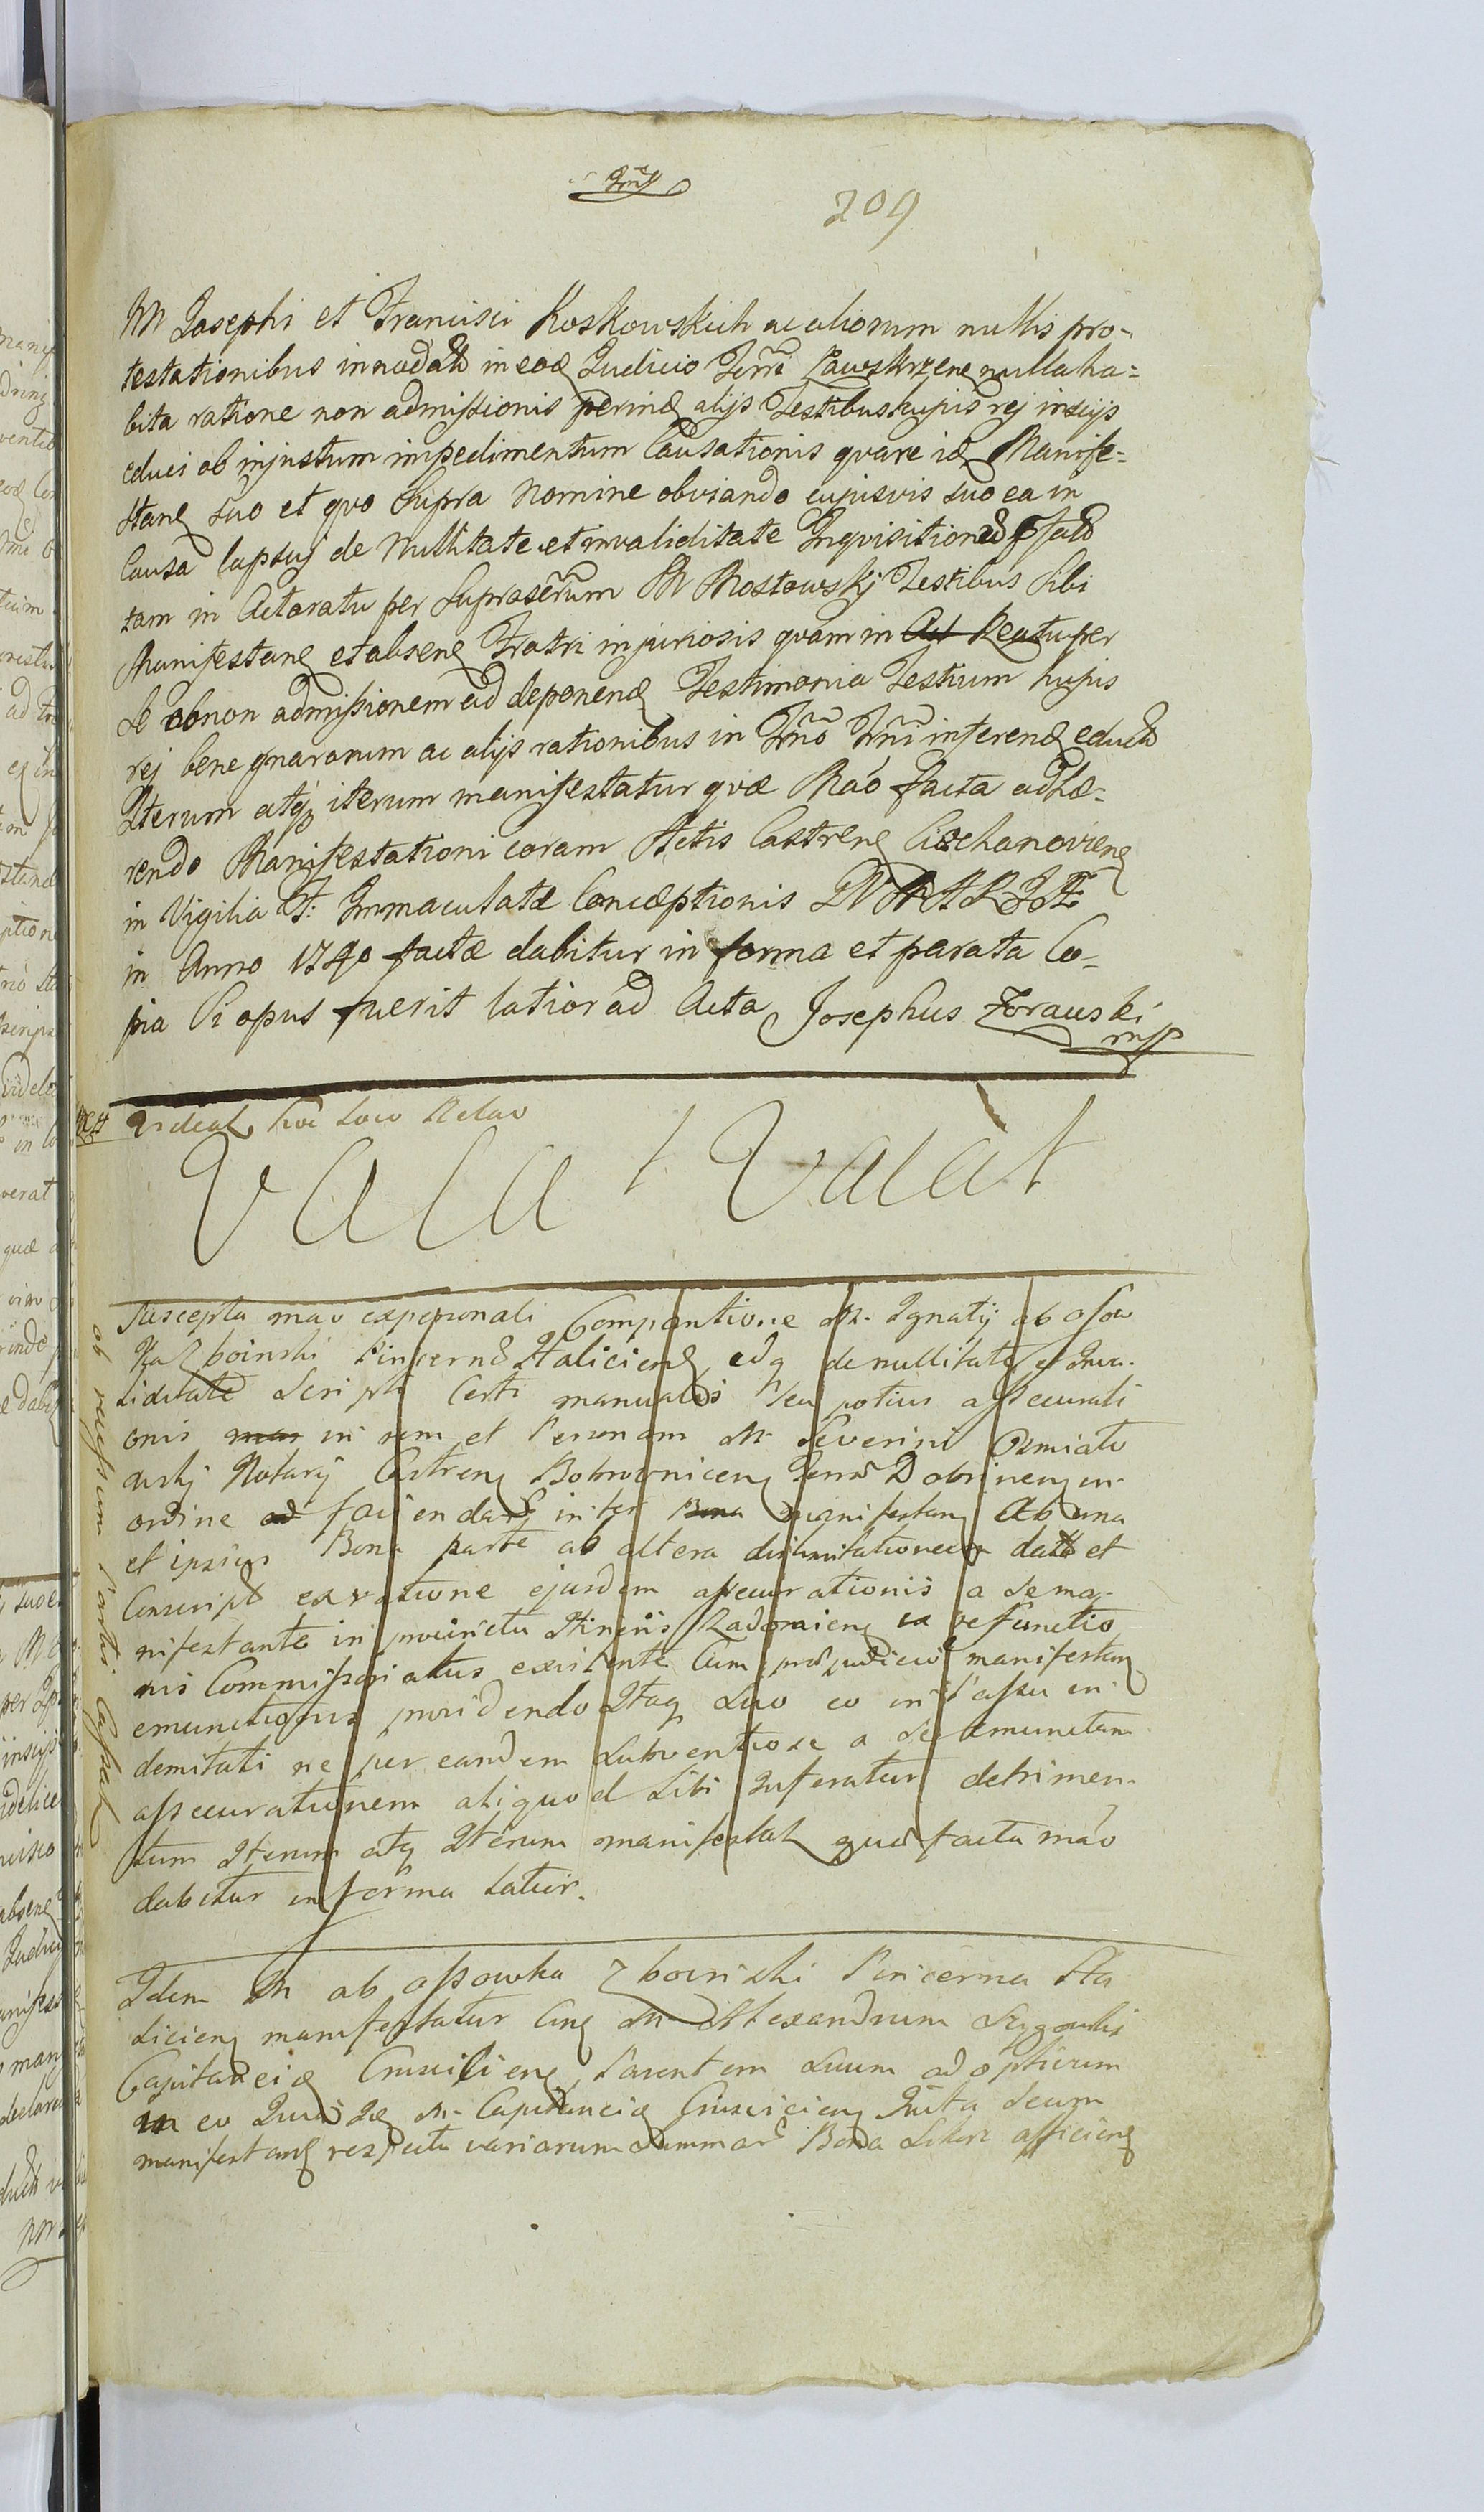 209
M Josephi et Francisci Koskowskich ac aliorum nullis pro-
testationibus innodatt in eod Judicio Terri Zawskrzen nulla ha=
bita ratione non admissionis perind alijs Testibus hujus rej inscijs
educi ob injustum impedimentum Causationis qvare id Manife=
stan suo et qvo Supra Nomine obviando cujusvis suo ea in
Causa lapsuj de Nullitate et invaliditate Inqvisitioned
tam in Actoratu per Suprascrum M Mostowskj Testibus Sibi
Manifestan et absen Fratri injuriosis qvam in Act Reatu per
Se ob non admissionem ad deponend Testimonia Testium hujus
rej bene gnarorum ac alijs rationibus in Trno Trni inferend educd
Iterum atq iterum manifestatur qvæ Mão facta adhæ-
rendo Manifestationi coram Actis Castren Ciechanovien
in Vigilia F: Immaculatæ Conceptionis
in Anno 1740 factæ dabitur in forma et parata Co-
pia Si opus fuerit latior ad Acta Josephus Zorawski
mp
Videat hoc loco Relao
Vacat Vacat
Suscepta mao expersonali Comparitione M. Ignatij ab Osow
ka Zboinski Pincernæ Haliciens, edq de nullitate et Inva-
liditate Scripti Certi manualis seu potius assecurati
onis in rem et Personam M Severini
Notarij Castren Bobrownicen Terræ Dobrinen in
ordine ad faciendam inter Bona manifestan ab una
et ipsius Bona parte ab altera dislimitationem datt et
Conscript ex ratione ejusdem assecurationis a se ma-
nifestante in procinctu Itineris Radomien ex refunctio
nis Commissariatus existente Cum præjudicio manifestan
emunctoriæ providendo Itaq suo eo in passu in-
demnitati ne per eandem Subventiose a Se emunctam
assecurationem aliquod Sibi Inferatur detrimen-
tum Iterum atq Iterum manifestat quæ facta mão
dabitur in forma latior.
ob recessum Partis Cassat
Idem M ab Ossowka Zboinski Pincerna Ha
licien manifestatur Cin M Alexandrum
Capitaneid Parentem Suum adoptivum
in eo Quia Id M Capitaneid Juta Secum
manifestand respectu variarum Summar Bona Sikorz afficien